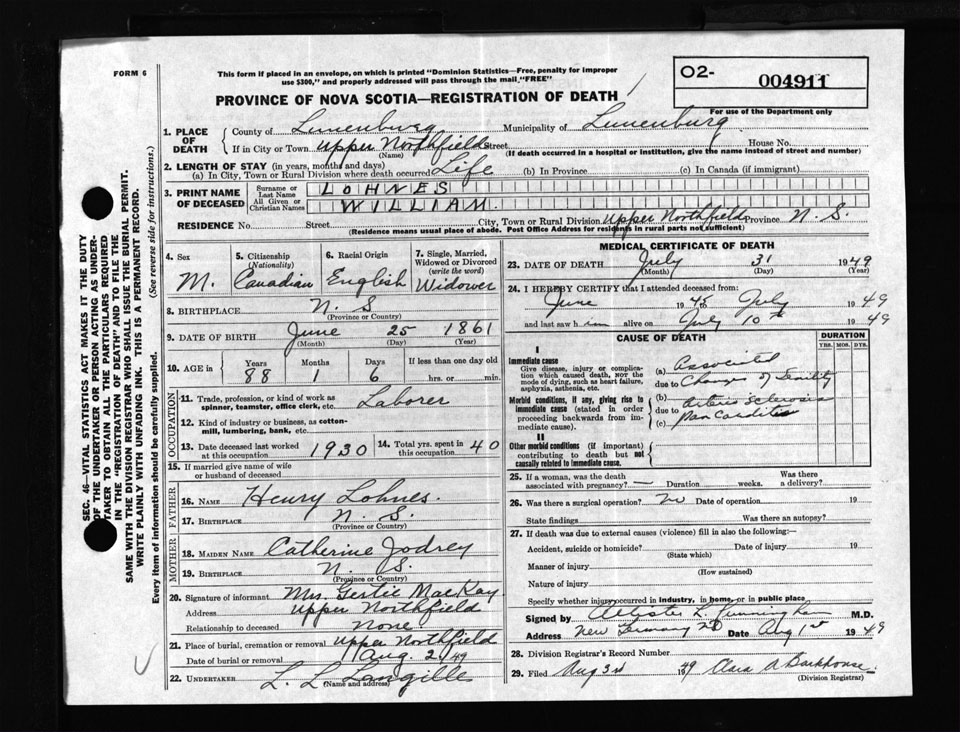 FORM 6
This form if placed in an envelope, on which is printed "Dominion Statistics—Free, penalty for improper
use $300," and properly addressed will pass through the mail "FREE"
PROVINCE OF NOVA SCOTIA—REGISTRATION OF DEATH
O2- 004911
For use of the Department only
SEC. 46—VITAL STATISTICS ACT MAKES IT THE DUTY
OF THE UNDERTAKER OR PERSON ACTING AS UNDER-
TAKER TO OBTAIN ALL THE PARTICULARS REQUIRED
IN THE "REGISTRATION OF DEATH" AND TO FILE THE
SAME WITH THE DIVISION REGISTRAR WHO SHALL ISSUE THE BURIAL PERMIT.
WRITE PLAINLY WITH UNFADING INK. THIS IS A PERMANENT RECORD.
Every item of information should be carefully supplied. (See reverse side for instructions.)
1. PLACE OF DEATH County of Lunenburg Municipality of Lunenburg
If in City or Town Upper Northfield Street House No.
(Name) (If death occurred in a hospital or institution, give the name instead of street and number)
2. LENGTH OF STAY (in years, months and days)
(a) In City, Town or Rural Division where death occurred Life (b) In Province (c) In Canada (if immigrant)
3. PRINT NAME OF DECEASED Surname or Last Name LOHNES
All Given or Christian Names WILLIAM.
RESIDENCE No. Street City, Town or Rural Division Upper Northfield Province N. S.
(Residence means usual place of abode. Post Office Address for residents in rural parts not sufficient)
4. Sex 5. Citizenship (Nationality) 6. Racial Origin 7. Single, Married, Widowed or Divorced (write the word)
M. Canadian English Widower
8. BIRTHPLACE N. S
(Province or Country)
9. DATE OF BIRTH June 25 1861
(Month) (Day) (Year)
10. AGE in Years Months Days If less than one day old
88 1 6 hrs. or min.
OCCUPATION
11. Trade, profession, or kind of work as spinner, teamster, office clerk, etc. Laborer
12. Kind of industry or business, as cotton-mill, lumbering, bank, etc.
13. Date deceased last worked at this occupation 1930 14. Total yrs. spent in this occupation 40
15. If married give name of wife or husband of deceased
FATHER
16. NAME Henry Lohnes.
17. BIRTHPLACE N. S.
(Province or Country)
MOTHER
18. MAIDEN NAME Catherine Jodrey
19. BIRTHPLACE N. S.
(Province or Country)
20. Signature of informant Mrs. Gertie MacKay
Address Upper Northfield
Relationship to deceased None
21. Place of burial, cremation or removal Upper Northfield
Date of burial or removal Aug. 2. 49
22. UNDERTAKER L. L. Langille
(Name and address)
MEDICAL CERTIFICATE OF DEATH
23. DATE OF DEATH July 31 1949
(Month) (Day) (Year)
24. I HEREBY CERTIFY that I attended deceased from:
June 1945 July 1949
and last saw him alive on July 10th 1949
CAUSE OF DEATH DURATION
YRS. MOS. DYS.
I
Immediate cause
Give disease, injury or complication which caused death, NOT the mode of dying, such as heart failure, asphyxia, asthenia, etc.
(a) Associated
due to Changes of Senility
Morbid conditions, if any, giving rise to immediate cause (stated in order proceeding backwards from immediate cause).
(b) Arterio Sclerosis
due to
(c)
II
Other morbid conditions (if important) contributing to death but not causally related to immediate cause.
25. If a woman, was the death associated with pregnancy? — Duration weeks. Was there a delivery?
26. Was there a surgical operation? no Date of operation 19
State findings Was there an autopsy?
27. If death was due to external causes (violence) fill in also the following:—
Accident, suicide or homicide? Date of injury 19
(State which)
Manner of injury
(How sustained)
Nature of injury
Specify whether injury occurred in industry, in home, or in public place
Signed by L. M.D.
Address New Germany Date Aug 1st 1949
28. Division Registrar's Record Number
29. Filed Aug 3rd 1949 Clara A Barkhouse
(Division Registrar)